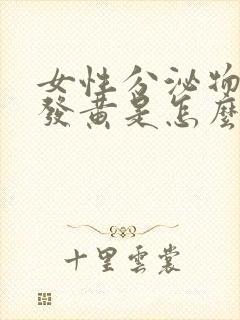 女性分泌物
發黃是怎麼
十里雲裳